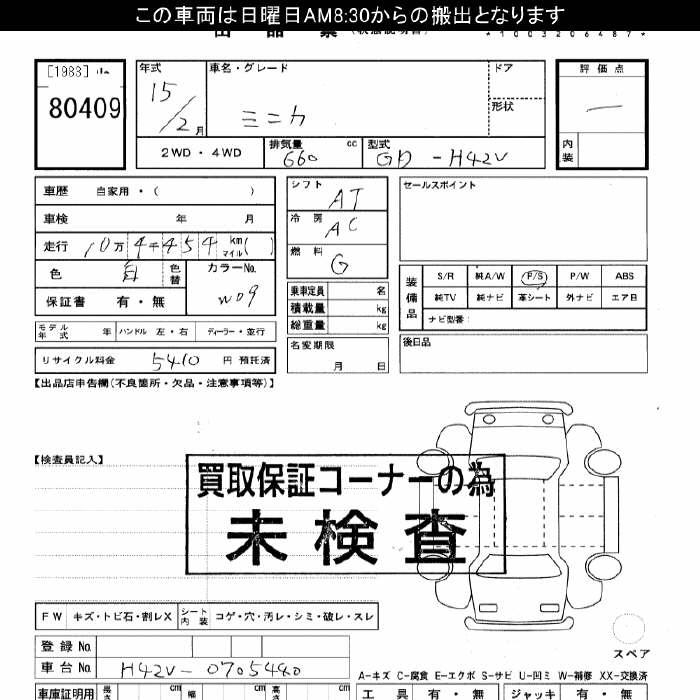 この車両は日曜日AM8:30からの搬出となります
出品票
*1003206487*
[1983]
80409
年式
15/2月
車名・グレード
ミニカ
ドア
形状
評価点
内装
2WD・4WD
排気量 660 cc
型式 GD - H42V
車歴 自家用・( )
車検 年 月
走行 10万4千454km マイル( )
色 白 色替
カラーNo. W09
保証書 有・無
シフト AT
冷房 AC
燃料 G
乗車定員 名
積載量 kg
総重量 kg
セールスポイント
装備品
S/R 純A/W P/S P/W ABS
純TV 純ナビ 革シート 外ナビ エア日
ナビ型番:
モデル年式 年 ハンドル 左・右 ディーラー・並行
リサイクル料金 5410 円 預託済
名変期限
月 日
後日品
【出品店申告欄(不良箇所・欠品・注意事項等)】
【検査員記入】
買取保証コーナーの為
未検査
FW キズ・トビ石・割レX シート内装 コゲ・穴・汚レ・シミ・破レ・スレ
スペア
登録No.
車台No. H42V-0705440
A-キズ C-腐食 E-エクボ S-サビ U-凹ミ W-補修 XX-交換済
車庫証明用 長さ cm 幅 cm 高さ cm
工具 有・無 ジャッキ 有・無